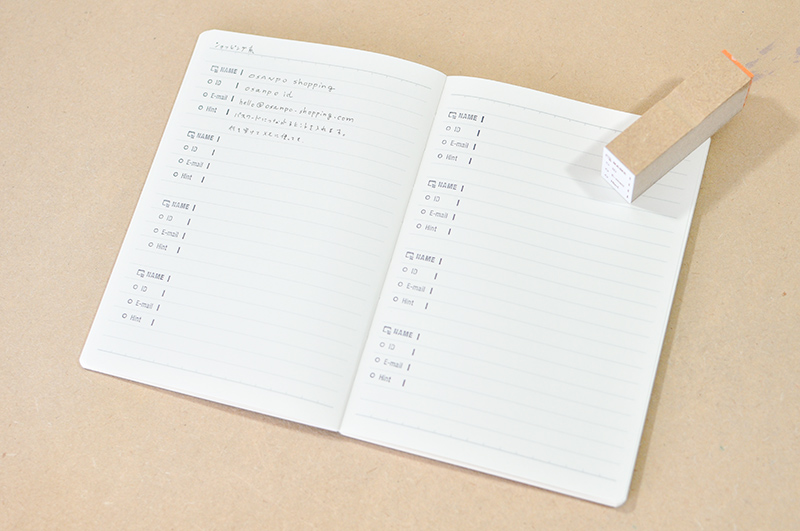 ショッピング系
NAME osanpo shopping
ID osanpo id
E-mail hello@osanpo.shopping.com
Hint
NAME
ID
E-mail
Hint
NAME
ID
E-mail
Hint
NAME
ID
E-mail
Hint
NAME
ID
E-mail
Hint
NAME
ID
E-mail
Hint
NAME
ID
E-mail
Hint
NAME
ID
E-mail
Hint